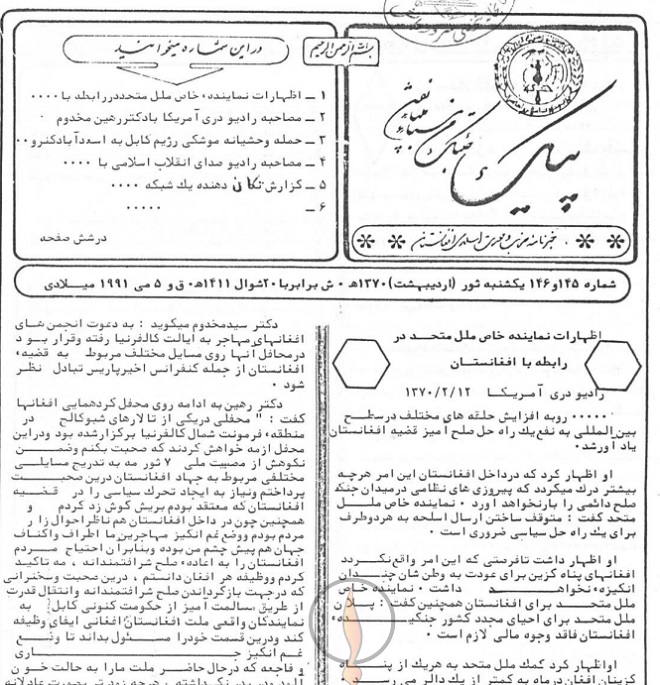 بسم الله الرحمن الرحیم
پیام
خبرنامه حزب وحدت اسلامی افغانستان
در این شماره میخوانید
۱ ــ اظهارات نماینده خاص ملل متحد در رابطه با ۰۰۰۰
۲ ــ مصاحبه رادیو دری آمریکا بادکتر رهین مخدوم
۳ ــ حمله وحشیانه موشکی رژیم کابل به اسعدآبادکنرو ۰۰
۴ ــ مصاحبه رادیو صدای انقلاب اسلامی با ۰۰۰۰
۵ ــ گزارش تکان دهنده یك شبکه ۰۰۰۰
۶ ــ ۰۰۰۰۰
درشش صفحه
شماره ۱۴۵و۱۴۶ یکشنبه ثور (اردیبهشت) ۱۳۷۰ه ۰ ش برابربا۲۰شوال ۱۴۱۱ه۰ق و ۵ می ۱۹۹۱ میلادی
اظهارات نماینده خاص ملل متحد در
رابطه با افغانستان
رادیو دری آمریکا ۱۳۷۰/۲/۱۲
۰۰۰۰۰ روبه افزایش حلقه های مختلف درسطح
بین المللی به نفع یك راه حل صلح آمیز قضیه افغانستان
یاد آورشد۰
او اظهار کرد که درداخل افغانستان این امر هرچه
بیشتر درك میگردد که پیروزی های نظامی درمیدان جنگ
صلح دائمی را بارنخواهد آورد ۰ نماینده خاص ملل
متحد گفت : متوقف ساختن ارسال اسلحه به هردوطرف
برای یك راه حل سیاسی ضروری است ۰
او اظهار داشت تافرصتی که این امر واقع نگردد
افغانهای پناه گزین برای عودت به وطن شان چندان
انگیزه نخواهد داشت ۰ نماینده خاص
ملل متحد برای افغانستان همچنین گفت : پلان
ملل متحد برای احیای مجدد کشور جنگ
افغانستان فاقد وجوه مالی لازم است ۰
او اظهار کرد کمك ملل متحد به هریك از پناه
گزینان افغان درماه به کمتر از یك دالر می رسد
دکتر سیدمخدوم میگوید : به دعوت انجمن های
افغانهای مهاجر به ایالت کالفرنیا رفته وقرار بود
درمحافل آنها روی مسایل مختلف مربوط به قضیه
افغانستان از جمله کنفرانس اخیرپاریس تبادل نظر
شود ۰
دکتر رهین به ادامه روی محفل گردهمایی افغانها
گفت : " محفلی دریکی از تالارهای شبوکالج در
منطقه فرمونت شمال کالفرنیا برگزارشده بود ودراین
محفل ازمه خواهش کردند که صحبت بکنم وضمن
نکوهش از مصیبت ملی ۷ ثور مه به تدریج مسایلی
مختلفی مربوط به جهاد افغانستان درین صحبت
پرداختم ونیاز به ایجاد تحرك سیاسی را در قضیه
افغانستان که معتقد بودم بریش گوش زد کردم و
همچنین چون در داخل افغانستان هم ناظراحوال زار
مردم بودم ووضع غم انگیز مهاجرین ما اطراف واکناف
جهان هم پیش چشم من بوده وبنابرآن احتیاج مردم
افغانستان را به اعاده صلح شرافتمندانه ، مه تاکید
کردم ووظیفه هر افغان دانستم ، درین صحبت وسخنرانی
که درجهت بازگرداندن صلح شرافتمندانه وانتقال قدرت
از طریق مسالمت آمیز از حکومت کنونی کابل به
نمایندگان واقعی ملت افغانستان افغانی ایفای وظیفه
کند ودرین قسمت خودرا مسئول بداند تا وضع
غم انگیز جاری
و فاجعه که درحال حاضر ملت مارا به حالت خون